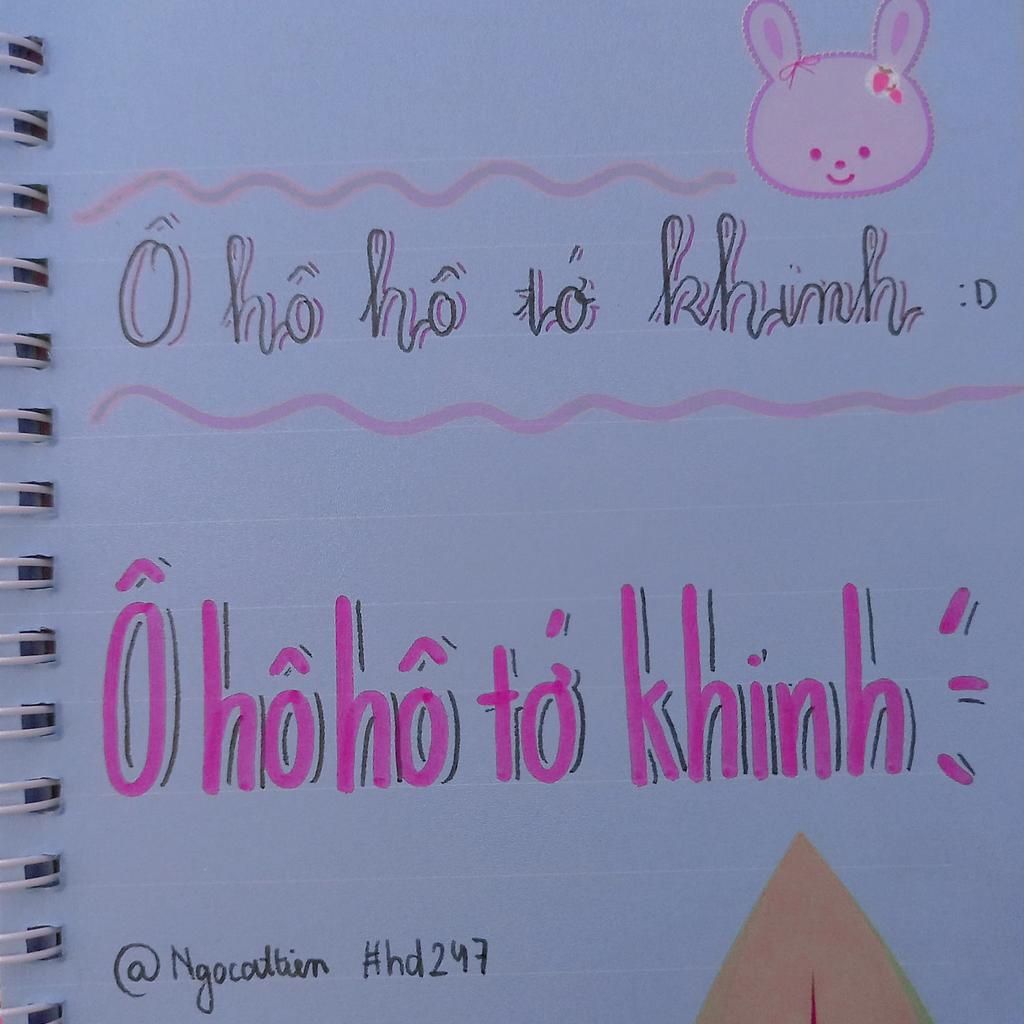 Ô hô hô tớ khinh :D
Ô hô hô tớ khinh
@Ngocattien #hd247